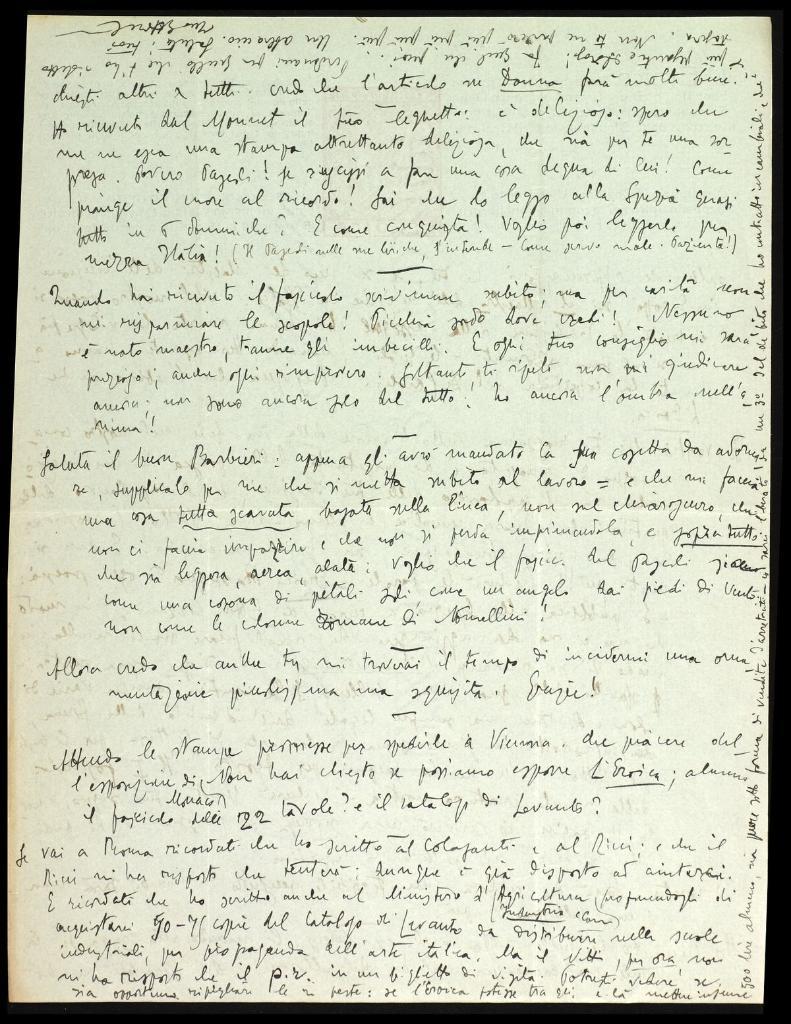 chiesti altri a tutti. credo che l'articolo su Donna farà molto bene.
Ho ricevuto dal Monnet il tuo legnetto: è delizioso: spero che
me ne esca una stampa altrettanto deliziosa, che sia per te una sor
presa. Povero Pagedi! se riuscissi a fare una cosa degna di Lui! Come
piange il cuore al ricordo! Sai che lo leggo alla Spezia quasi
tutto in 6 domeniche? E come conquista! Voglio poi leggerlo per
mezza Italia! (Il nelle mie liriche, s'intende – Come scrivo male. Pazienza!)
Quando hai ricevuto il fascicolo scrivimene subito; ma per carità non
mi risparmiare le scopole! Picchia sodo dove credi! Nessuno
è nato maestro, tranne gli imbecilli. E ogni tuo consiglio mi sarà
prezioso; anche ogni rimprovero. Soltanto ti ripeto non mi giudicare
ancora: non sono ancora solo del tutto! ho ancora l'ombra nell'a
nima!
Saluta il buon Barbieri: appena gli avrò mandato la sua cosetta da adorna
re, supplicalo per me che si metta subito al lavoro = e che mi faccia
una cosa tutta scavata, basata sulla linea, non sul chiaroscuro, che
non ci faccia impazzire e che non si perda imprimendola, e sopra tutto
che sia leggera, aerea, alata: voglio che il fascic. del
come una corona di petali come un angelo dai piedi di vento
non come le colonne romane di Nomellini!
Allora credo che anche tu mi troverai il tempo di incidermi una orna
mentazione piccolissima ma squisita. Grazie!
Attendo le stampe promesse per spedirle a Vienna. che piacere del
l'esposizione di Monaco! Non hai chiesto se possiamo esporre L'Eroica; almeno
il fascicolo delle 122 tavole? e il catalogo di Levanto?
Se vai a Roma ricordati che ho scritto al Colasanti e al Ricci; e che il
Ricci mi ha risposto che tenterà: dunque è già disposto ad aiutarci.
E ricordati che ho scritto anche al Ministero d'Agricoltura Industria e Com proponendogli di
acquistarci 50-75 copie del Catalogo di Levanto da distribuire nelle scuole
industriali, per propaganda dell'arte italica. Ma il Nitti, per ora non
mi ha risposto che il p.r. in un biglietto di visita. Potresti vedere se
sia opportuno ripigliare le peste: se l'Eroica potesse tra gli e là mettere insieme
500 lire almeno, sia pure sotto forma di vendite d'arretrati
Perdonami per quello che t'ho
Un abbraccio. Saluta i tuoi
Tuo Ettore